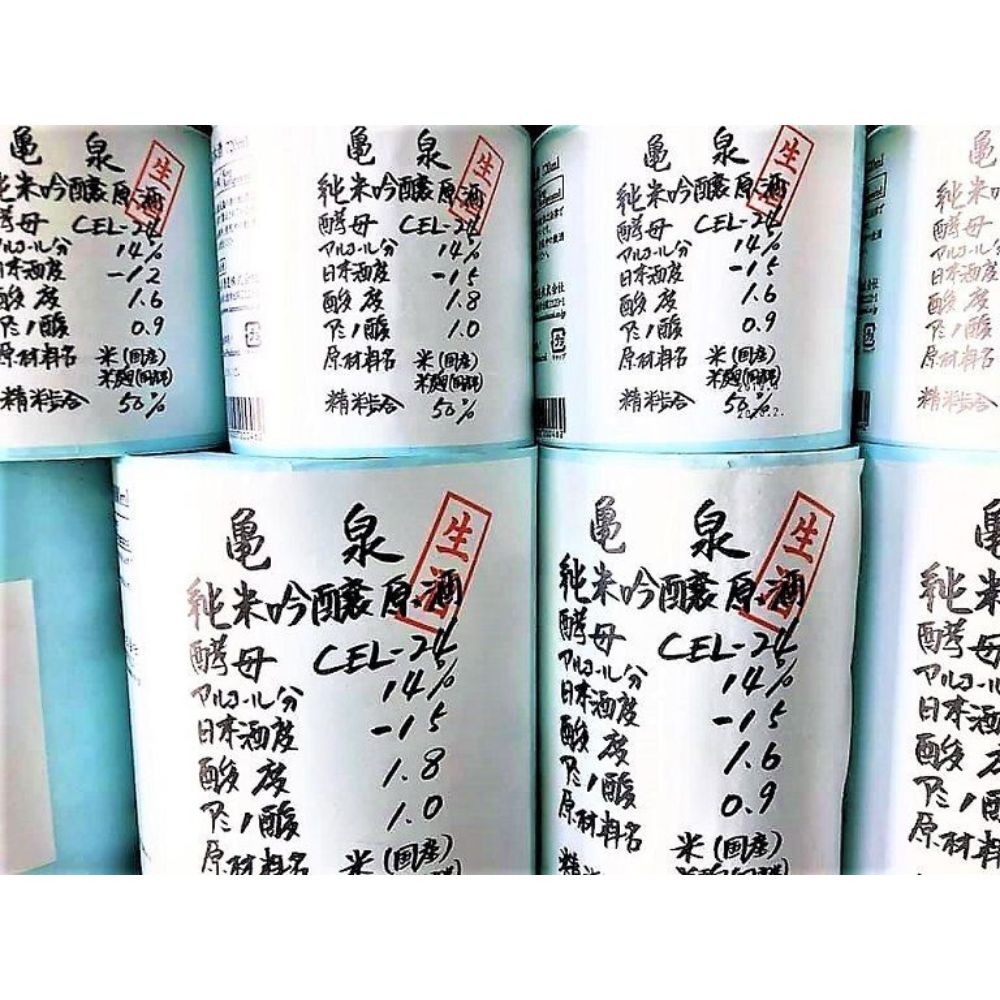 亀 泉
生酒
純米吟醸原酒
酵母 CEL-24
アルコール分 14%
日本酒度 -12
酸度 1.6
アミノ酸 0.9
原材料名 米(国産)
米麹(国産米)
精米歩合 50%
720ml
亀 泉
生酒
純米吟醸原酒
酵母 CEL-24
アルコール分 14%
日本酒度 -15
酸度 1.8
アミノ酸 1.0
原材料名 米(国産)
米麹(国産米)
精米歩合 50%
720ml
亀 泉
生酒
純米吟醸原酒
酵母 CEL-24
アルコール分 14%
日本酒度 -15
酸度 1.6
アミノ酸 0.9
原材料名 米(国産)
米麹(国産米)
精米歩合 50%
亀
純米
酵母
アルコール分
日本酒度
酸度
アミノ酸
原材料名
精米歩合
亀 泉
生酒
純米吟醸原酒
酵母 CEL-24
アルコール分 14%
日本酒度 -15
酸度 1.8
アミノ酸 1.0
原材料名 米(国産)
亀 泉
生酒
純米吟醸原酒
酵母 CEL-24
アルコール分 14%
日本酒度 -15
酸度 1.6
アミノ酸 0.9
原材料名 米(国産)
亀
純米
酵母
アルコール分
日本酒度
酸度
アミノ酸
原材料